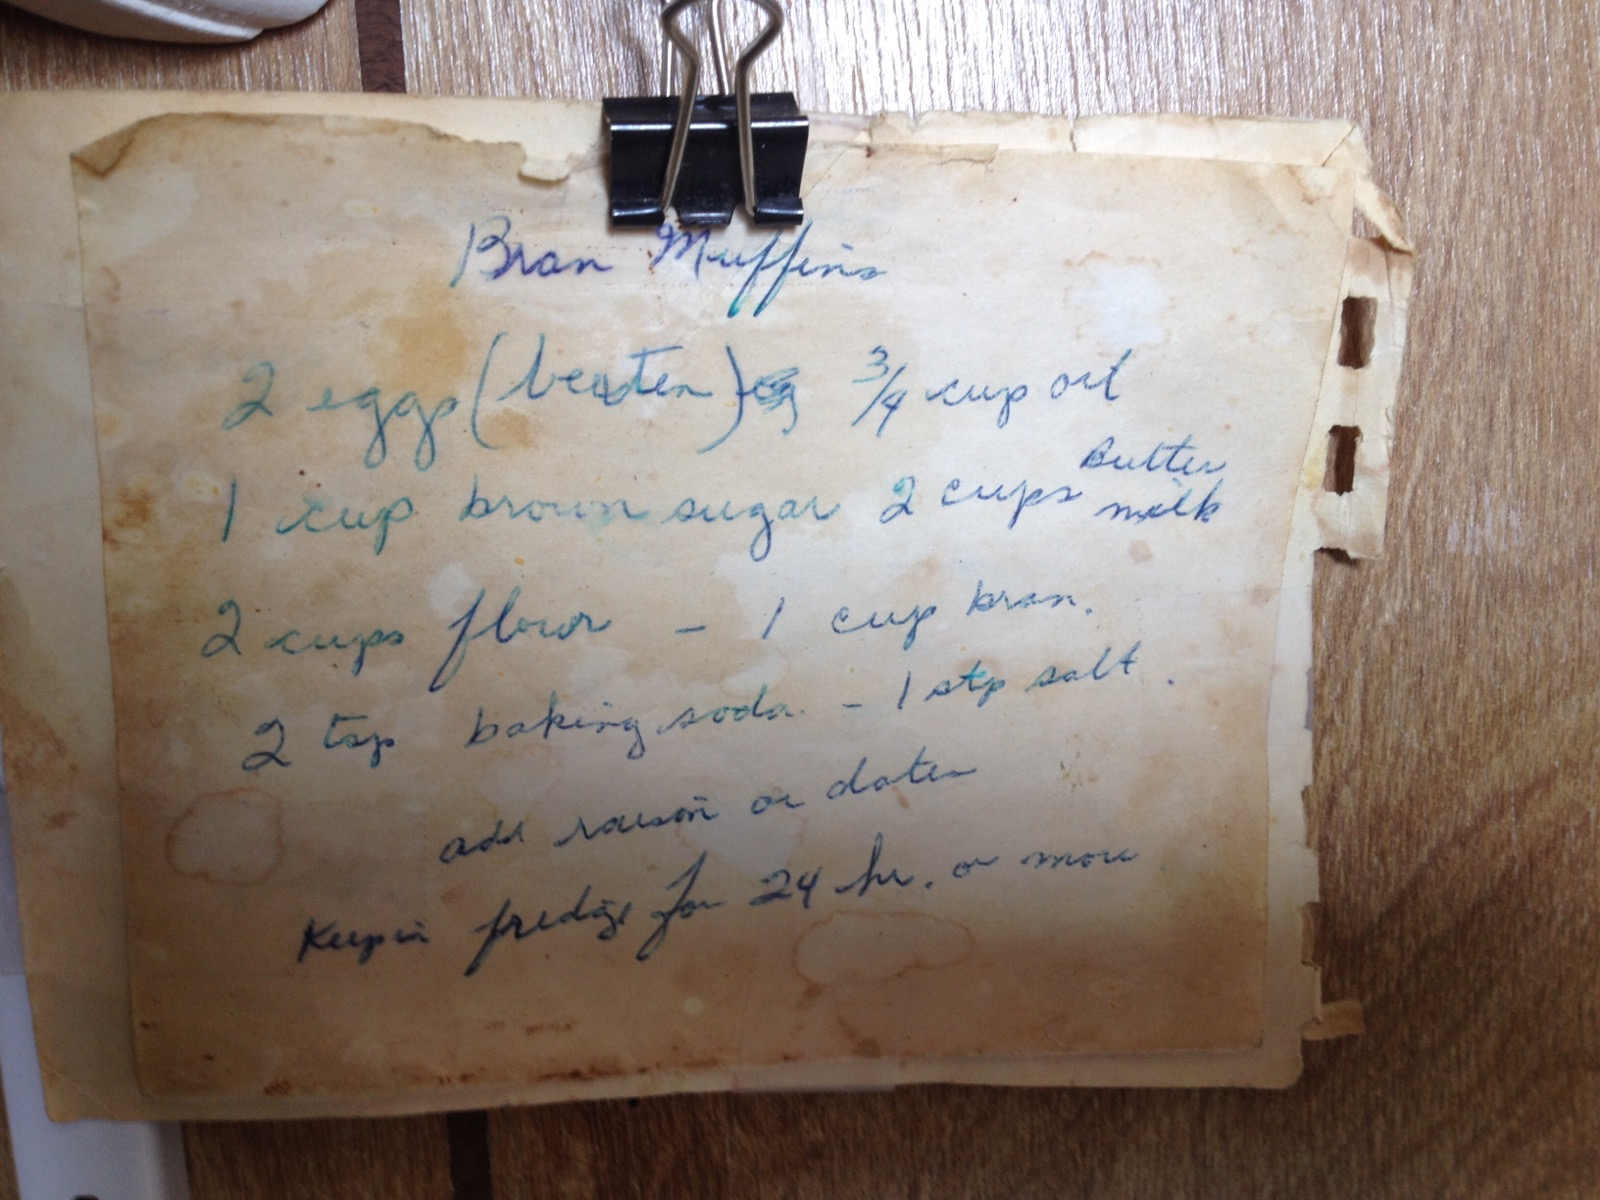 Bran Muffins
2 eggs (beaten) 3/4 cup oil
1 cup brown sugar 2 cups Butter milk
2 cups flour - 1 cup bran.
2 tsp baking soda. - 1 stp salt.
add raison or daten
Keep in fredige for 24 hr. or more